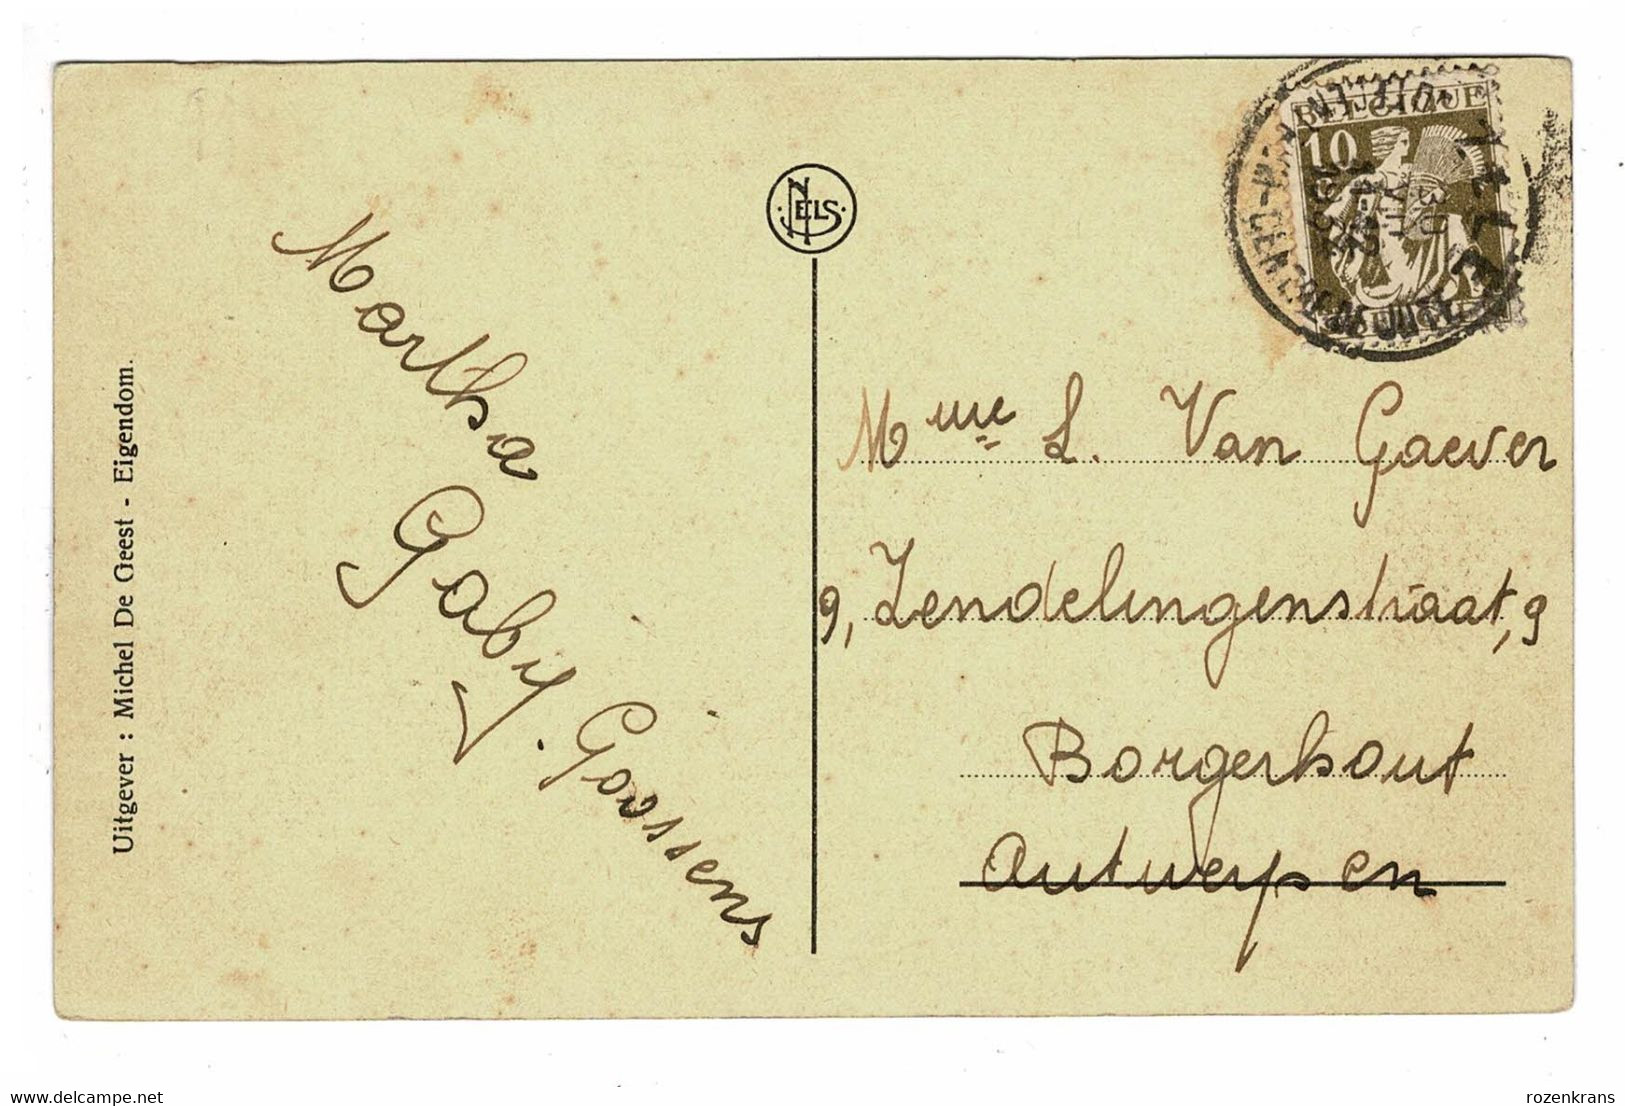 Uitgever : Michel De Geest - Eigendom.
Martha
Gaby. Goossens
NELS
BELGIQUE
10
ZELE
30
VII
11-12
Mme L. Van Gaever
9, Zendelingenstraat, 9
Borgerhout
Antwerpen
www.delcampe.net
rozenkrans